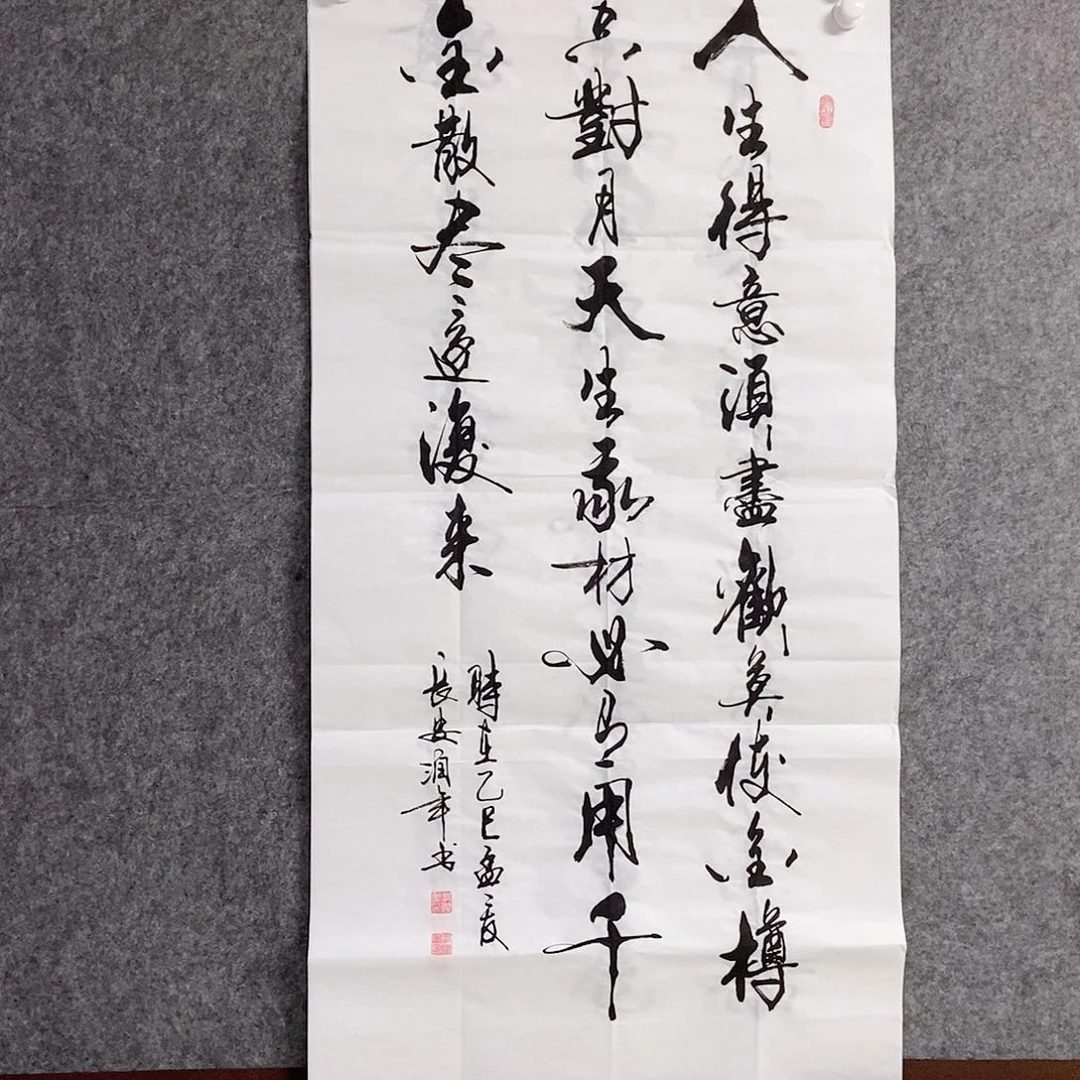 人生得意須盡歡莫使金樽
空對月天生我材必有用千
金散尽還復来
時在乙巳孟夏
長安润年书